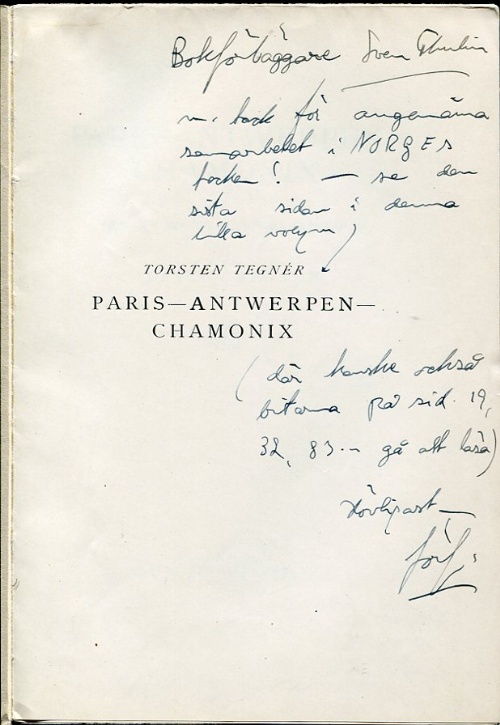 Bokförläggare Sven Thulin
m. tack för angenäma
samarbetet i NORGES
boken! — se den
sista sidan i denna
lilla volym)
TORSTEN TEGNÉR
PARIS—ANTWERPEN—
CHAMONIX
(där kanske också
bitarna på sid. 19,
32, 83 -- gå att läsa)
Hövligast —
förf.